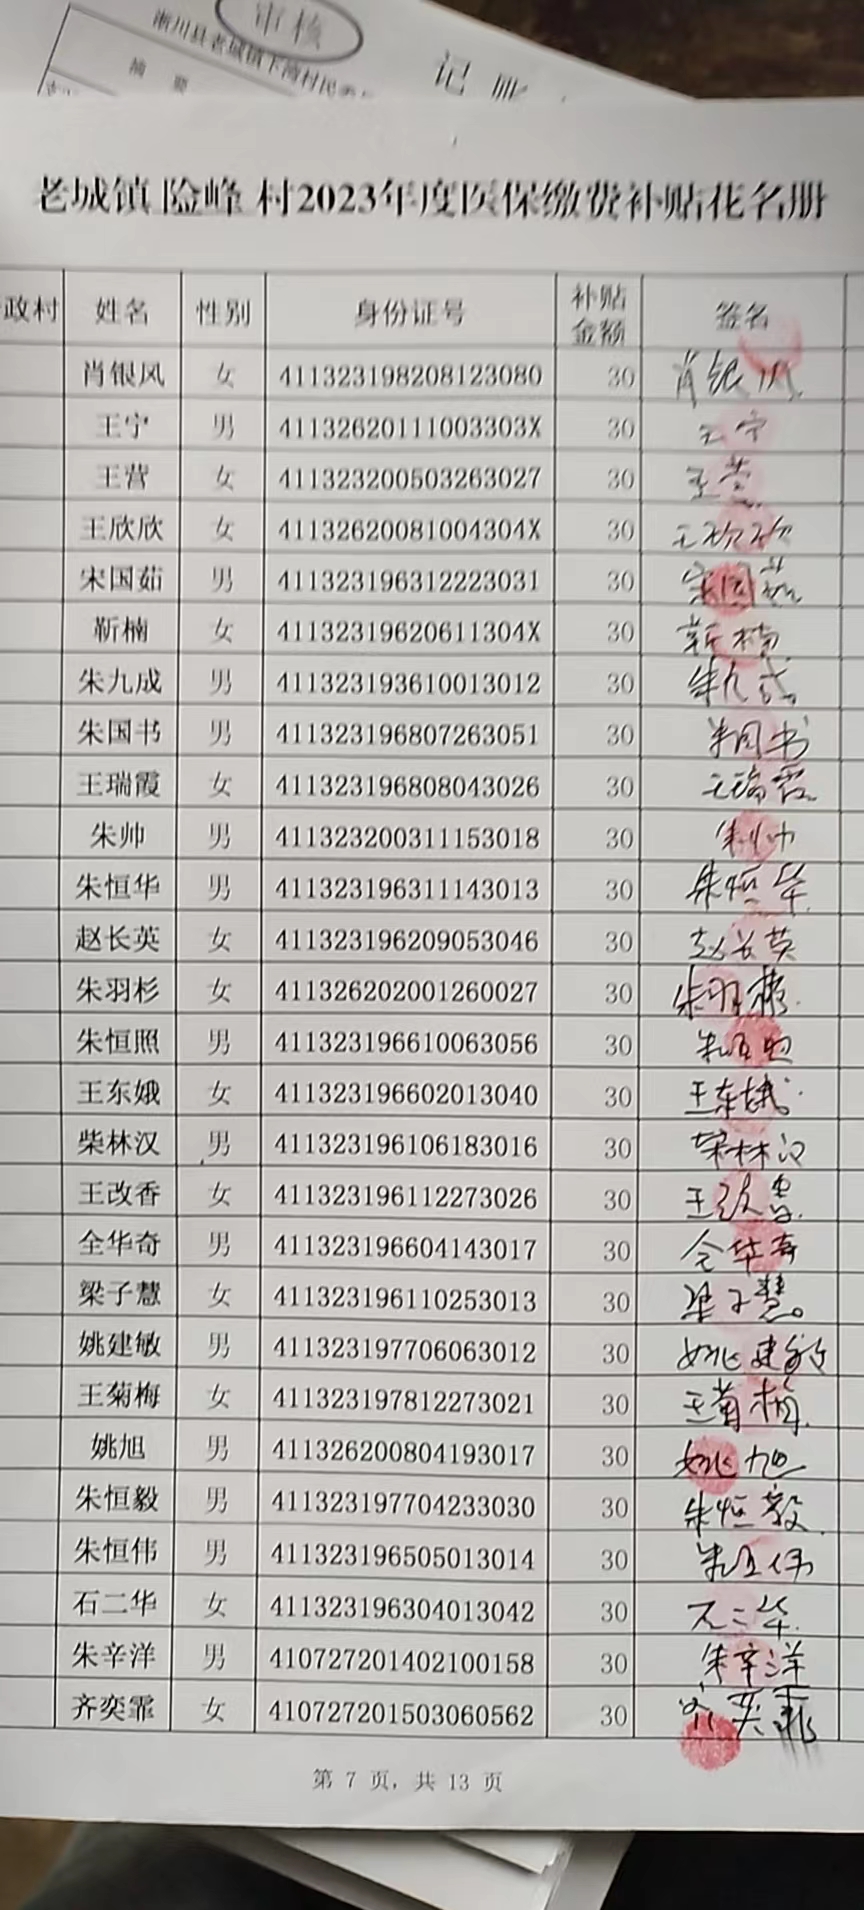 审核
淅川县老城镇下湾村民委
摘 要
记 账
老城镇 险峰 村2023年度医保缴费补贴花名册
政村 姓名 性别 身份证号 补贴金额 签名
肖银风 女 411323198208123080 30 肖银风
王宁 男 41132620111003303X 30 王宁
王营 女 411323200503263027 30 王营
王欣欣 女 41132620081004304X 30 王欣欣
宋国茹 男 411323196312223031 30 宋国茹
靳楠 女 41132319620611304X 30 靳楠
朱九成 男 411323193610013012 30 朱九成
朱国书 男 411323196807263051 30 朱国书
王瑞霞 女 411323196808043026 30 王瑞霞
朱帅 男 411323200311153018 30 朱帅
朱恒华 男 411323196311143013 30 朱恒华
赵长英 女 411323196209053046 30 赵长英
朱羽杉 女 411326202001260027 30 朱羽
朱恒照 男 411323196610063056 30 朱恒照
王东娥 女 411323196602013040 30 王东娥
柴林汉 男 411323196106183016 30 柴林汉
王改香 女 411323196112273026 30 王改香
全华奇 男 411323196604143017 30 全华奇
梁子慧 女 411323196110253013 30 梁子慧
姚建敏 男 411323197706063012 30 姚建敏
王菊梅 女 411323197812273021 30 王菊梅
姚旭 男 411326200804193017 30 姚旭
朱恒毅 男 411323197704233030 30 朱恒毅
朱恒伟 男 411323196505013014 30 朱恒伟
石二华 女 411323196304013042 30 石二华
朱辛洋 男 410727201402100158 30 朱辛洋
齐奕霏 女 410727201503060562 30 齐奕霏
第 7 页，共 13 页